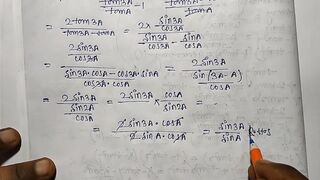 tom3A / tomA - 1 tomA
= 2tom3A / tom3A - tomA = 2 × sin3A/cos3A / sin3A/cos3A - sinA/cosA
= 2sin3A/cos3A / sin3A·cosA - cos3A·sinA / cos3A·cosA = 2sin3A/cos3A / sin(3A-A)/cos3A·cosA
= 2sin3A / sin2A/cosA = 2sin3A × cosA/sin2A =
= 2sin3A·cosA / 2sinA·cosA = sin3A/sinA